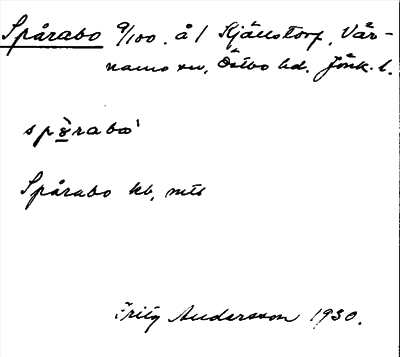 Spårabo 9/100. å 1 Kjällstorp, Vär-
namo sn, Östbo hd. Jönk. l.
spɣ̀rabo'
Spårabo kb, mts
Fritz Andersson 1930.